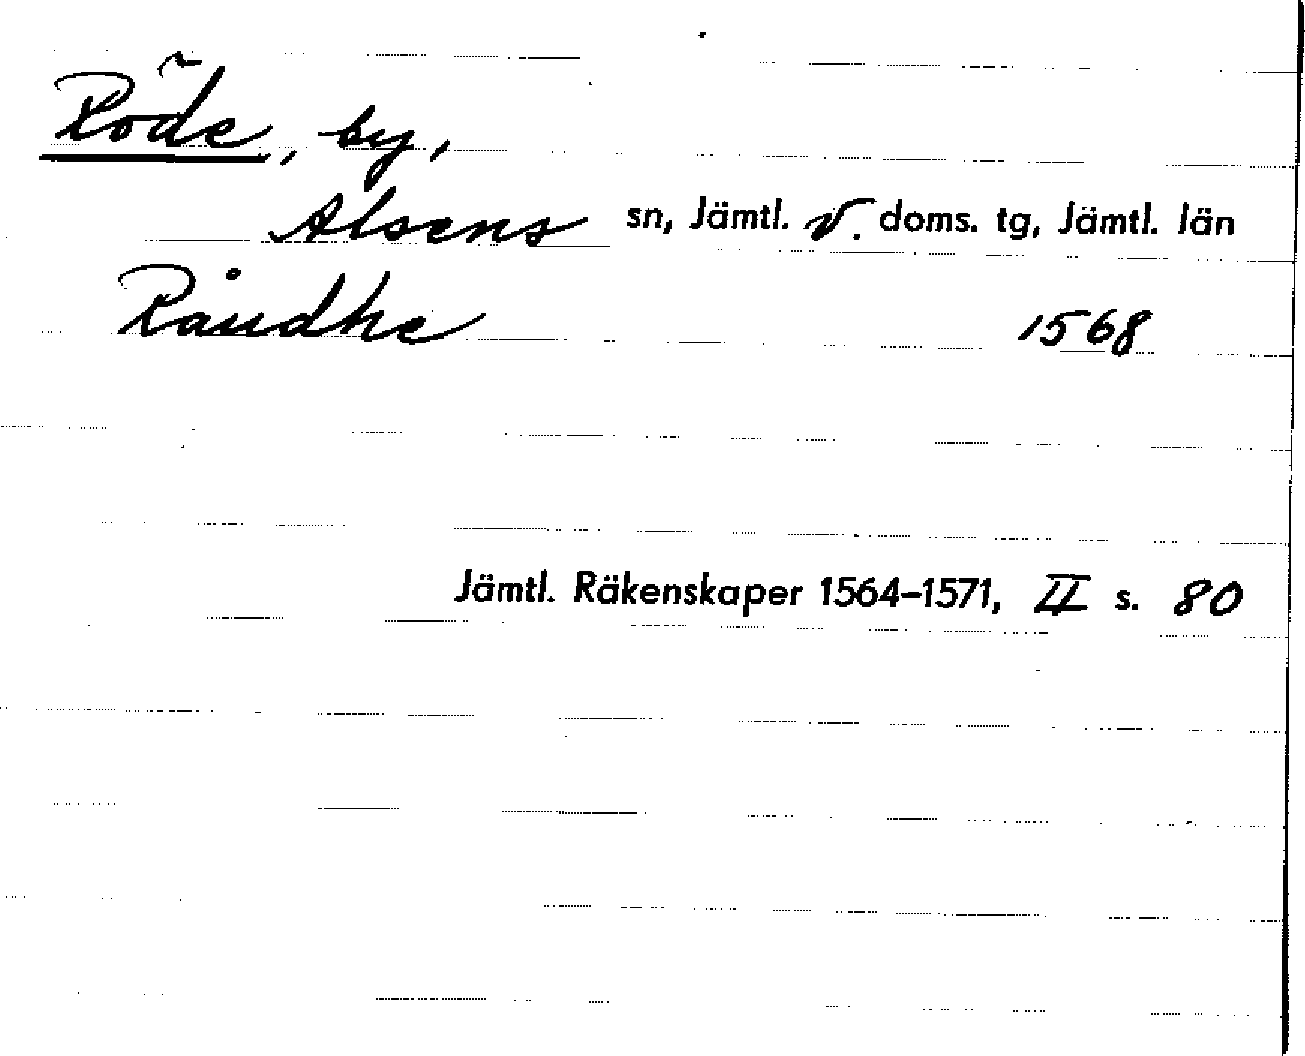 Röde, by,
Alsens sn, Jämtl. V. doms. tg, Jämtl. län
Råudhe 1568
Jämtl. Räkenskaper 1564–1571, II s. 80